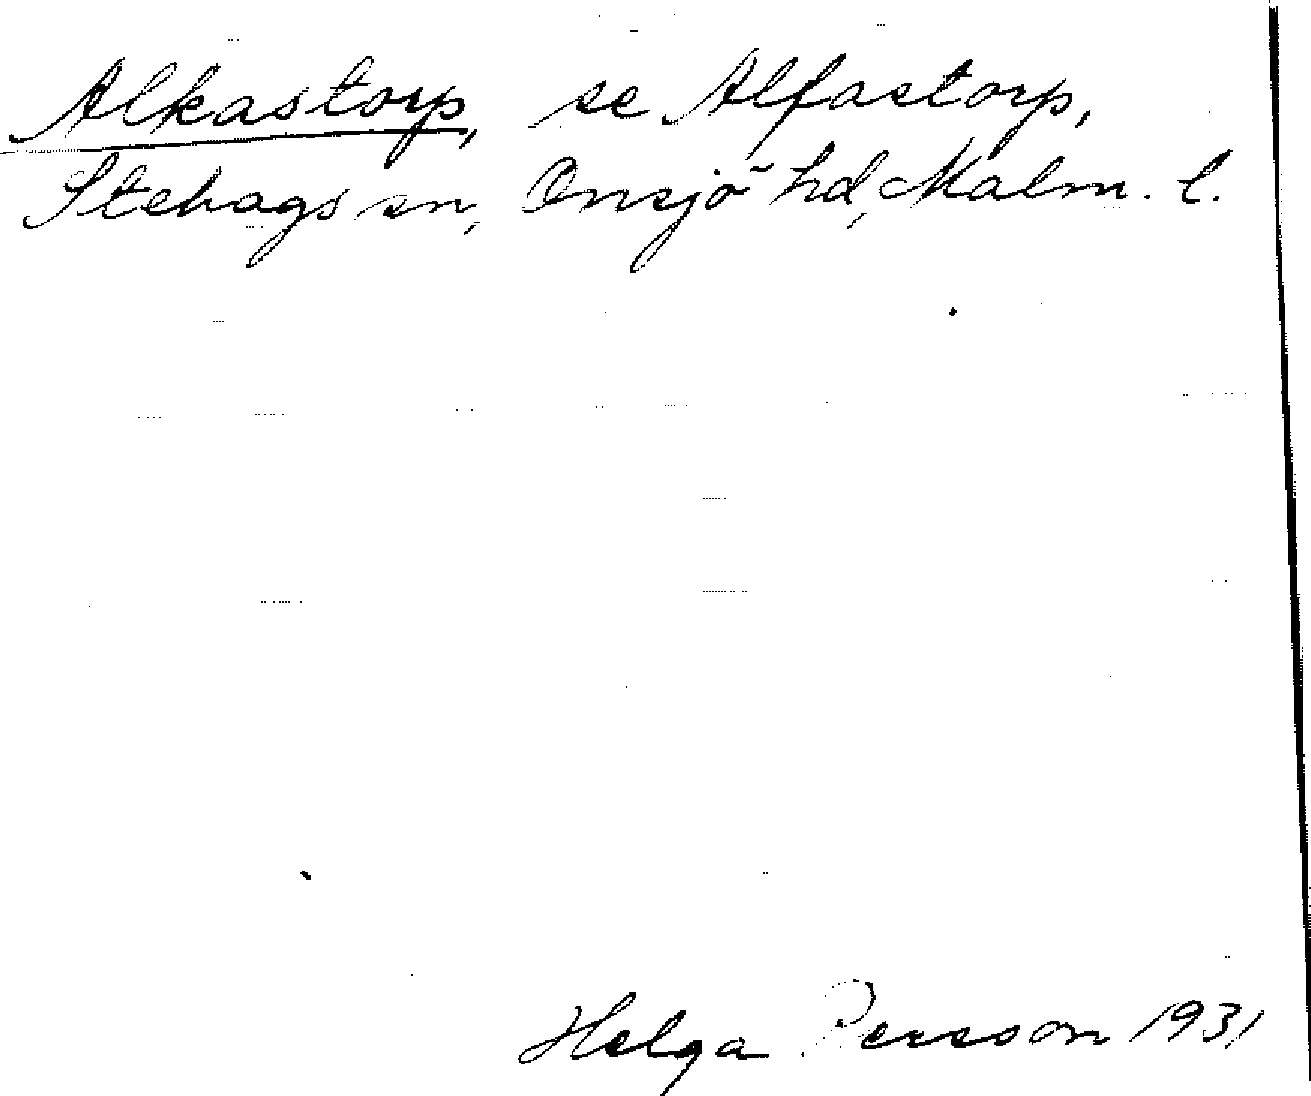 Alkastorp, se Alfastorp,
Stehags sn, Onsjö hd, Malm. l.
Helga Persson 1931